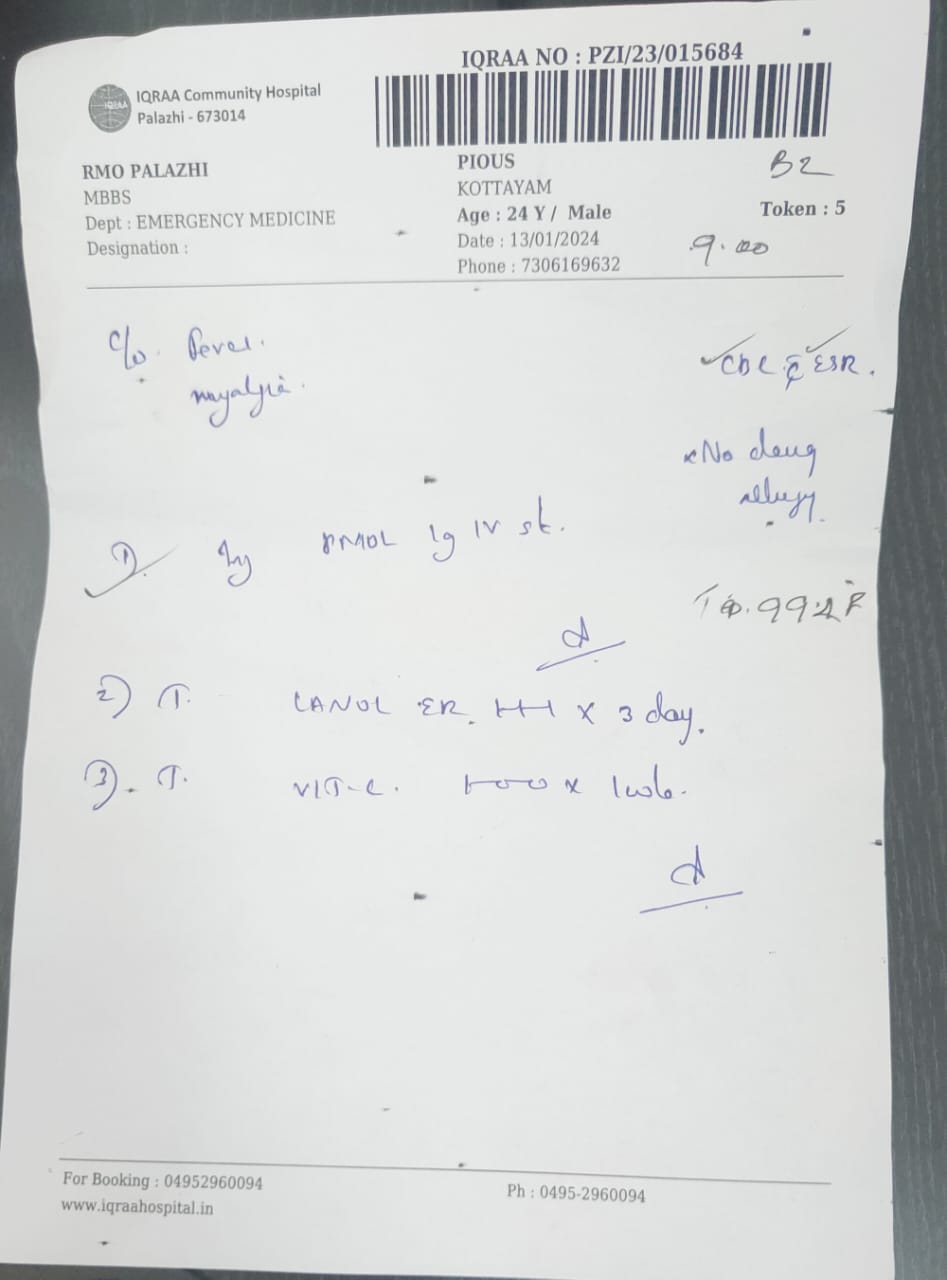 IQRAA NO : PZI/23/015684
IQRAA
IQRAA Community Hospital
Palazhi - 673014
RMO PALAZHI
MBBS
Dept : EMERGENCY MEDICINE
Designation :
PIOUS
KOTTAYAM
Age : 24 Y / Male
Date : 13/01/2024
Phone : 7306169632
B2
Token : 5
9.00
C/o. Fever.
myalgia.
CBC c̄ ESR.
No drug
allergy.
1). Inj PMOL 1g IV st.
2) T. LANOL ER. 1-1-1 x 3 day.
3). T. VIT-C. 1-0-0 x 1 wk.
For Booking : 04952960094
www.iqraahospital.in
Ph : 0495-2960094